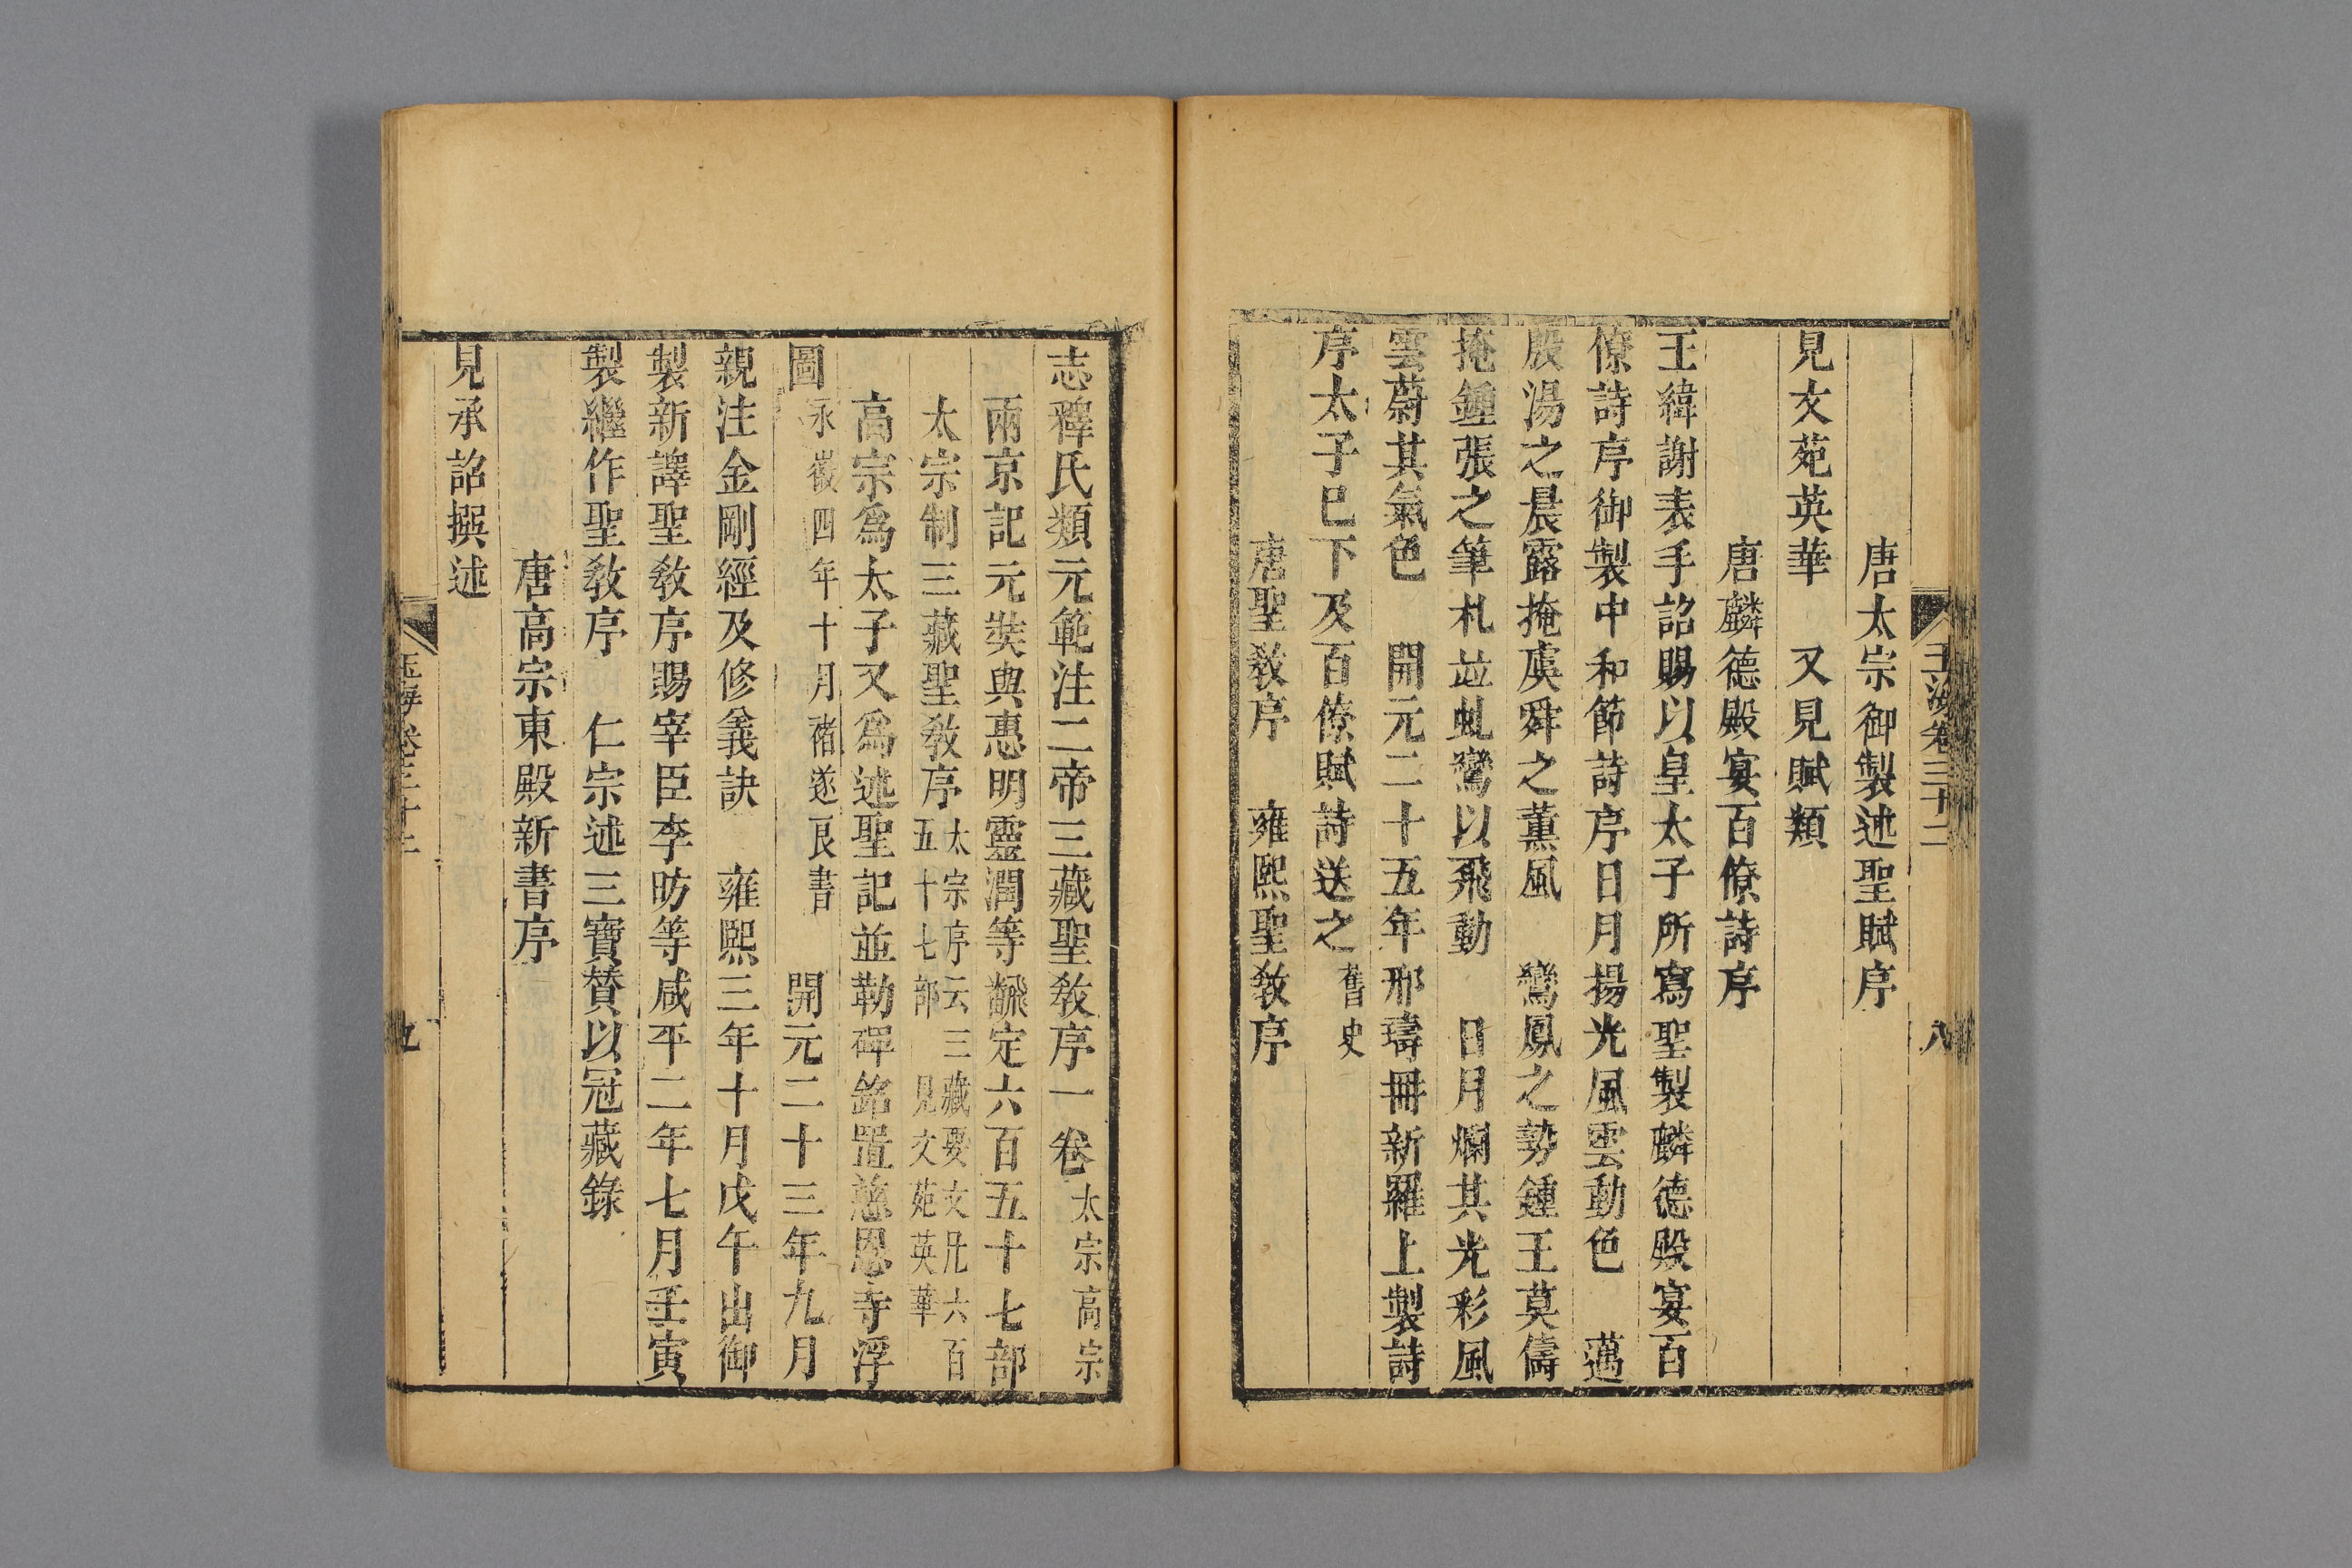 玉海卷三十二
八
唐太宗御製述聖賦序
見文苑英華　又見賦類
唐麟德殿宴百僚詩序
王緯謝表手詔賜以皇太子所寫聖製麟德殿宴百
僚詩序御製中和節詩序日月揚光風雲動色　邁
殷湯之晨露掩虞舜之薰風　鸞鳳之勢鍾王莫儔
掩鍾張之筆札並虬鸞以飛動　日月爛其光彩風
雲蔚其氣色　開元二十五年邢璹冊新羅上製詩
序太子巳下及百僚賦詩送之舊史
唐聖敎序　雍熙聖敎序
志釋氏類元範注二帝三藏聖敎序一卷太宗高宗
兩京記元奘與惠明靈潤等飜定六百五十七部
太宗制三藏聖敎序太宗序云三藏要文凡六百
五十七部　見文苑英華
高宗爲太子又爲述聖記並勒碑銘置慈恩寺浮
圖永徽四年十月褚遂良書　開元二十三年九月
親注金剛經及修義訣　雍熙三年十月戊午出御
製新譯聖敎序賜宰臣李昉等咸平二年七月壬寅
製繼作聖敎序　仁宗述三寶贊以冠藏錄
唐高宗東殿新書序
見承詔撰述
玉海卷三十二
九